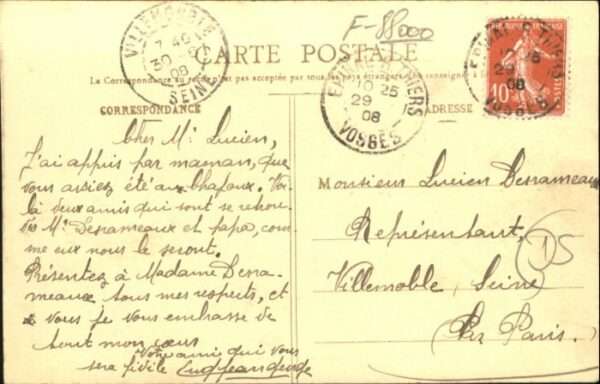 F-88000
VILLEMOMBLE
7 40
30
08
SEINE
CARTE POSTALE
La Correspondance au recto n'est pas acceptée par tous les pays étrangers
CORRESPONDANCE
ADRESSE
10 25
29
08
VOSGES
10 25
29
08
VOSGES
10
Cher Mr Lucien,
J'ai appris par maman, que
vous aviez été aux Chapaux. Voi-
là deux amis qui sont se retrou-
vés Mr Desrameaux et papa, com
me eux nous le seront.
Présentez à Madame Desra-
meaux tous mes respects, et
à vous je vous embrasse de
tout mon cœur
Votre ami qui vous
sera fidèle
Monsieur Lucien Desrameaux
Représentant,
Villemoble, Seine
Par Paris.
DS